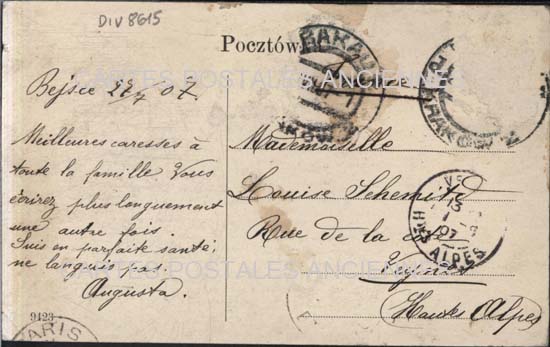 DIV 8615
Pocztów
KRAKÓW 2
KRAKÓW 2
CARTES POSTALES ANCIENNES
Bejsce 27/7 07.
Meilleures caresses à
toute la famille Vous
écrirez plus longuement
une autre fois.
Suis en parfaite santé,
ne languis pas.
Augusta.
Mademoiselle
Louise Schemitd
Rue de la
Veynes
Hautes Alpes
CARTES POSTALES ANCIENNES
VE
13
07
HTES ALPES
9423
PARIS